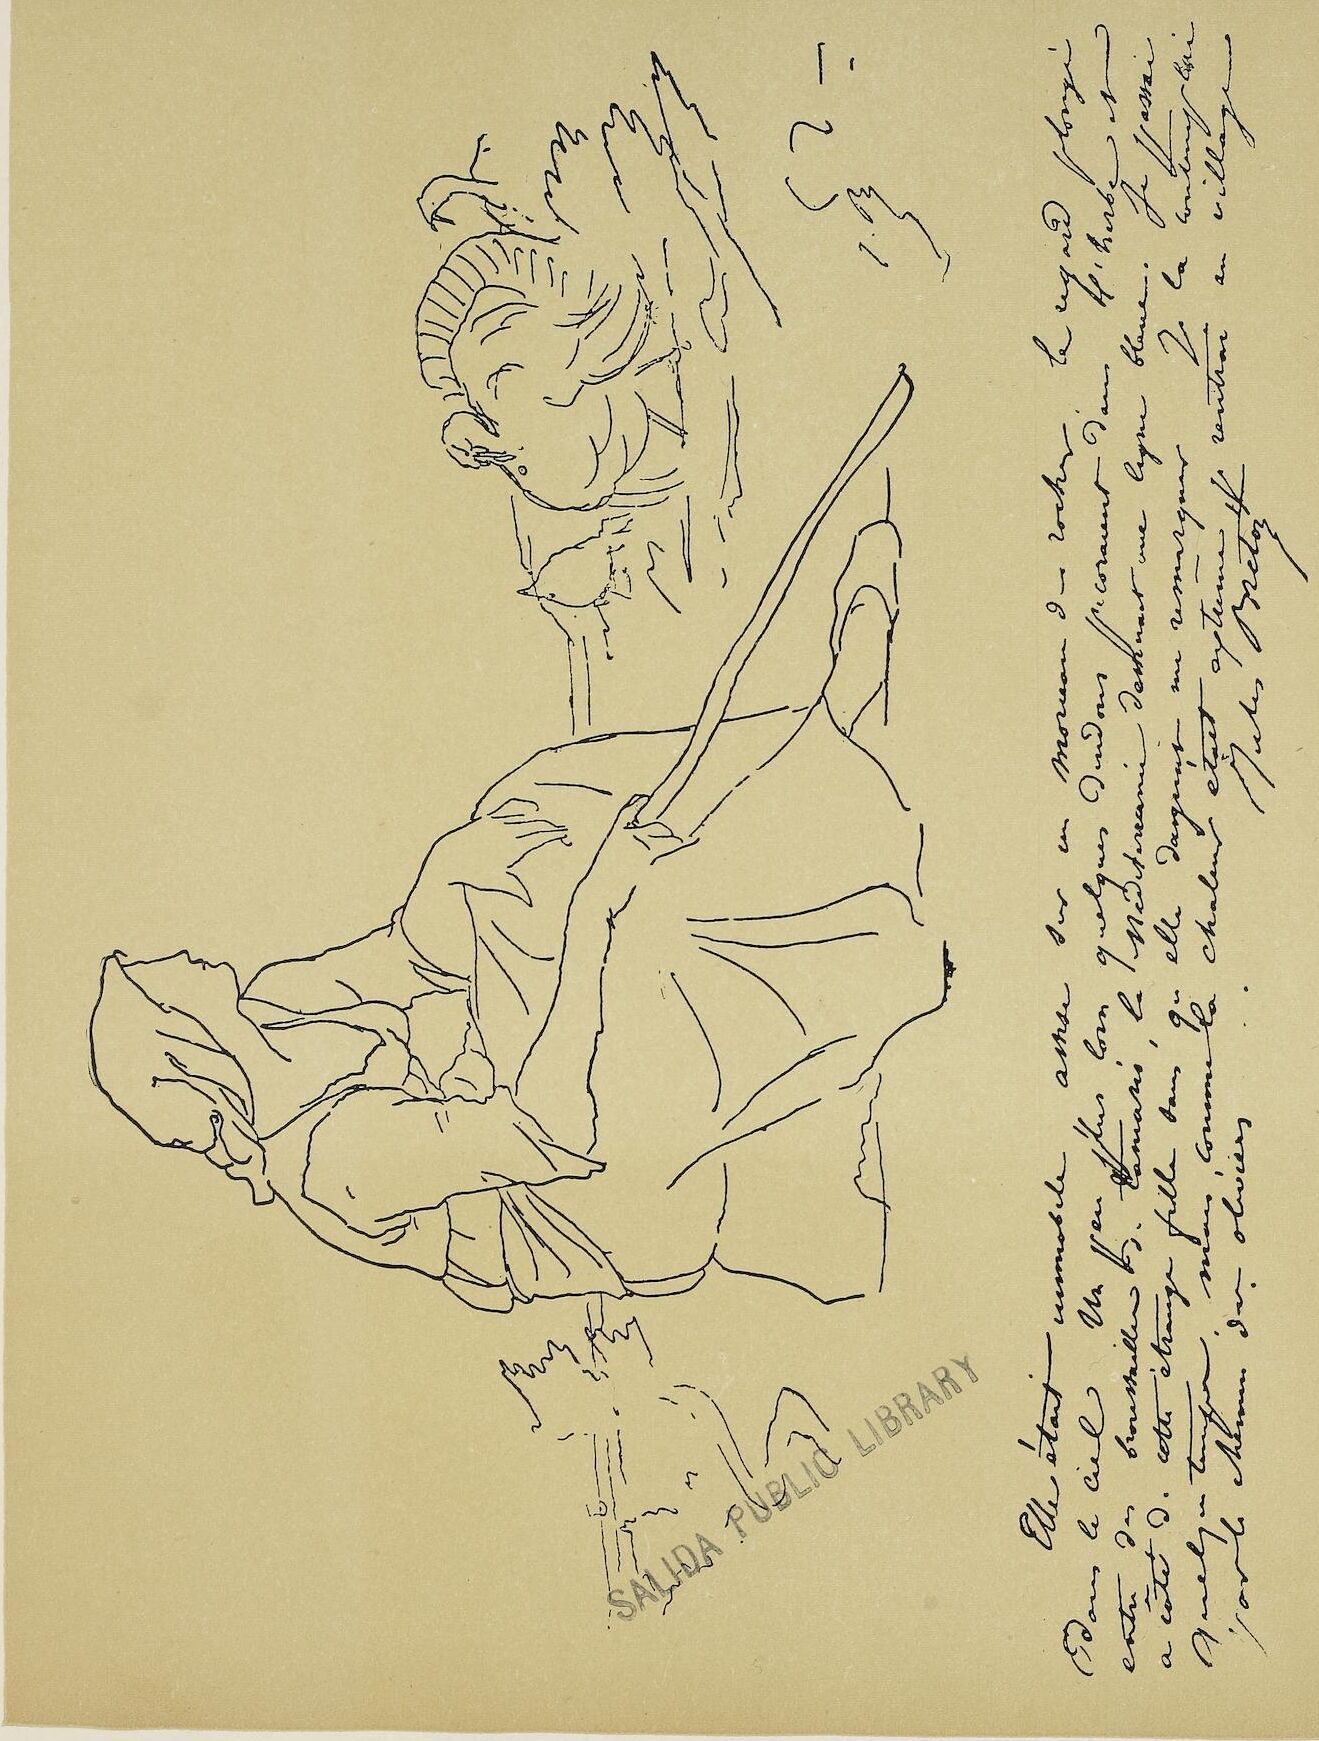 J. B.
SALIDA PUBLIC LIBRARY
Elle était immobile assise sur un morceau de rocher le regard plongé
Dans le ciel Un peu plus loin quelques dindons picoraient dans l'herbe et
entre des broussailles de tamaris, la Méditerranée dessinait une ligne bleue. Je passai
a côté de cette étrange fille sans qu'elle daignât me remarquer Je la contemplai
quelque temps, mais, comme la chaleur était extrême je rentrai au village
par le chemin des oliviers
Jules Breton